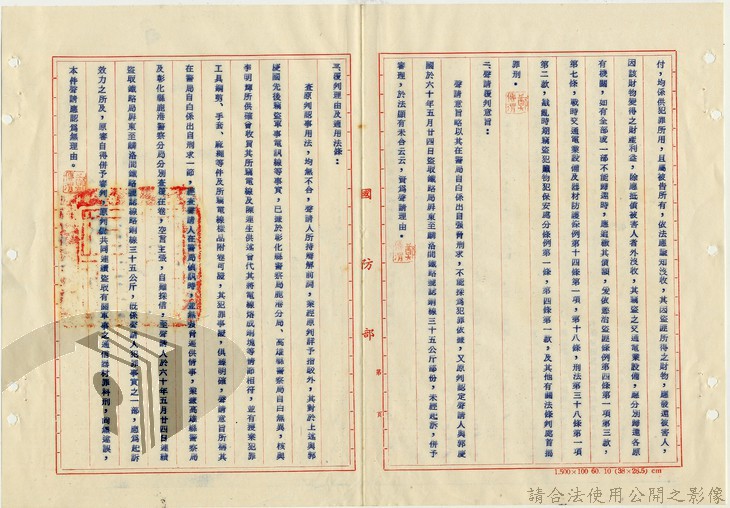 付，均係供犯罪所用，且屬被告所有，依法應諭知沒收，其因盜匪所得之財物，應發還被害人，
因該財物變得之財產利益，除應抵償被害人者外沒收，其竊盜之交通電業設備，應分別歸還各原
有機關，如有全部或一部不能歸還時，應追徵其價額，爰依懲治盜匪條例第四條第一項第三款，
第七條，戰時交通電業設備及器材防護條例第十四條第一項，第十八條，刑法第三十八條第一項
第二款，戡亂時期竊盜犯贓物犯保安處分條例第一條，第四條第一款，及其他有關法條判處首揭
罪刑。
二、聲請覆判意旨：
聲請意旨略以其在警局自白係出自強脅刑求，不能採為犯罪依據，又原判認定聲請人與郭慶
國於六十年五月廿四日盜取鐵路局屏東至歸洛間鐵路號誌銅線三十五公斤部份，未經起訴，併予
審理，於法顯有未合云云，資為聲請理由。
三、覆判理由及適用法條：
查原判認事用法，均無不合，聲請人所持辯解前詞，業經原判詳予指駁外，其對於上述與郭
慶國先後竊盜軍事電訊線等事實，已迭於彰化縣警察局鹿港分局、高雄縣警察局自白無異，核與
李明輝所供確曾收買其所竊電線及陳連生供述曾代其將電線熔成銅塊等情節相符，並有獲案犯罪
工具鋼剪、手套、麻繩等件及所竊電線樣品附卷可證，其犯罪事證，供證明確，聲請意旨所稱其
在警局自白係出自刑求一節，
及彰化縣鹿港警察分局分別查覆在卷，空言主張，自難採信，至聲請人於六十年五月廿四日連續
盜取鐵路局屏東至歸洛間鐵路號誌線路銅線三十五公斤，既係聲請人犯罪事實之一部，應為起訴
效力之所及，原審自得併予審判，原判
本件聲請應認為無理由。
國防部
第　頁
1.500×100 60. 10 (38×26.5) cm
請合法使用公開之影像